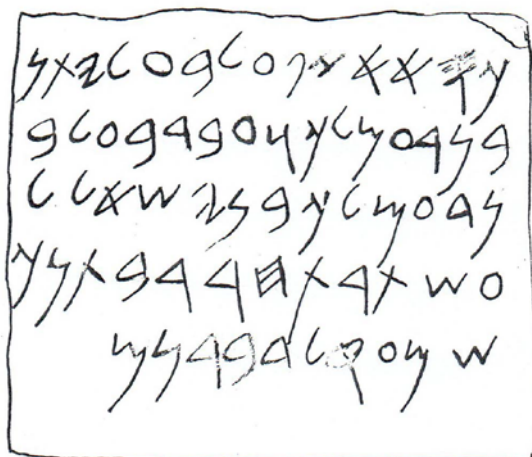 𐤊𐤎𐤀𐤀𐤆𐤐𐤏𐤋𐤁𐤏𐤋𐤉𐤕𐤍
𐤁𐤍𐤃𐤏𐤌𐤋𐤊𐤅𐤏𐤁𐤃𐤁𐤏𐤋𐤁
𐤍𐤃𐤏𐤌𐤋𐤊𐤁𐤍𐤉𐤔𐤀𐤋𐤋
𐤏𐤔𐤕𐤓𐤕𐤇𐤓𐤓𐤁𐤕𐤍𐤊
𐤔𐤌𐤏𐤒𐤋𐤃𐤁𐤓𐤍𐤌